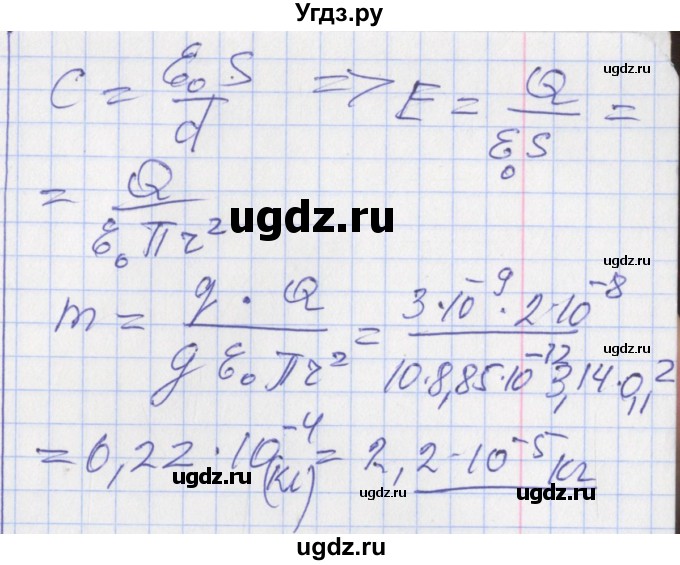 Угдз.ру
C = ε₀ S / d => E = Q / ε₀ S =
ugdz.ru
ugdz.ru
= Q / ε₀ π r²
ugdz.ru
ugdz.ru
m = q · Q / g ε₀ π r² = 3·10⁻⁹ · 2·10⁻⁸ / 10·8,85·10⁻¹² 3,14·0,1²
ugdz.ru
ugdz.ru
= 0,22·10⁻⁴ (кг) = 2,2·10⁻⁵ кг
ugdz.ru
ugdz.ru
ugdz.ru
ugdz.ru